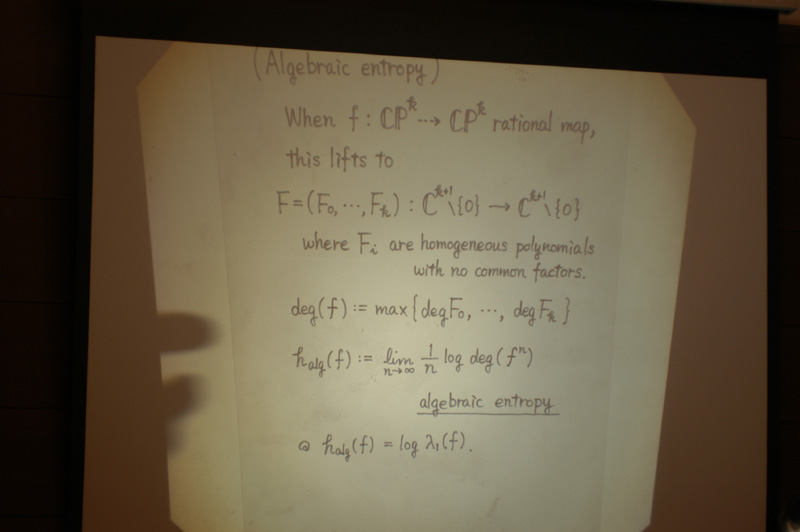 (Algebraic entropy)
When f : ℂℙᵏ ⇢ ℂℙᵏ rational map,
this lifts to
F = (F₀, ⋯, Fₖ) : ℂᵏ⁺¹\{0} → ℂᵏ⁺¹\{0}
where Fᵢ are homogeneous polynomials
with no common factors.
deg(f) := max{degF₀, ⋯, degFₖ}
h_alg(f) := lim_{n→∞} 1/n log deg(fⁿ)
algebraic entropy
@ h_alg(f) = log λ₁(f).